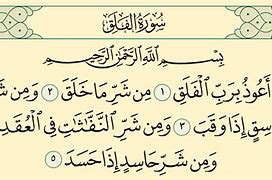 سُورَةُ الْفَلَقِ
بِسْمِ ٱللَّهِ ٱلرَّحْمَٰنِ ٱلرَّحِيمِ
أَعُوذُ بِرَبِّ ٱلْفَلَقِ ١ مِن شَرِّ مَا خَلَقَ ٢ وَمِن شَ
سِقٍ إِذَا وَقَبَ ٣ وَمِن شَرِّ ٱلنَّفَّٰثَٰتِ فِى ٱلْعُقَدِ
وَمِن شَرِّ حَاسِدٍ إِذَا حَسَدَ ٥